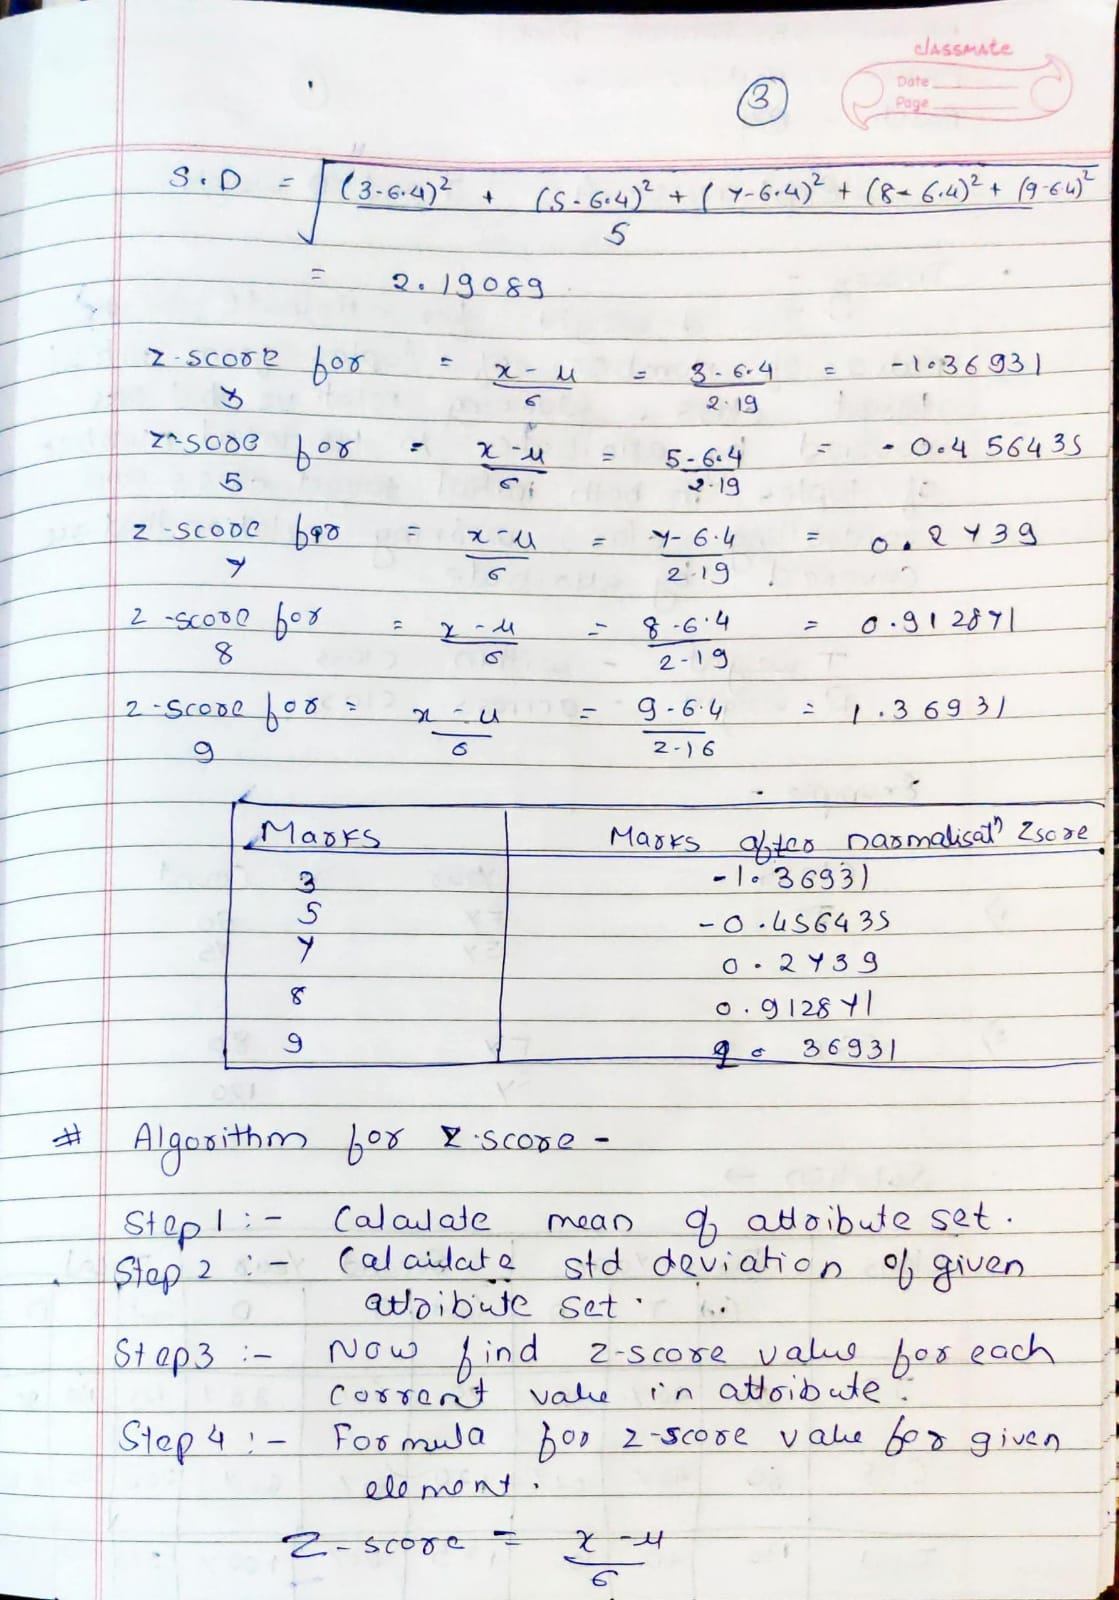 classmate
Date
Page
3
S.D = √ (3-6.4)² + (5-6.4)² + (7-6.4)² + (8-6.4)² + (9-6.4)² / 5
= 2.19089
z-score for 3 = x-μ / σ = 3-6.4 / 2.19 = -1.36931
z-sode for 5 = x-μ / σ = 5-6.4 / 2.19 = -0.456435
z-score for 7 = x-μ / σ = 7-6.4 / 2.19 = 0.2739
z-score for 8 = x-μ / σ = 8-6.4 / 2.19 = 0.912871
z-score for 9 = x-μ / σ = 9-6.4 / 2.16 = 1.36931
Marks Marks after normalisatⁿ Zscore
3 -1.36931
5 -0.456435
7 0.2739
8 0.912871
9 . 36931
# Algorithm for Z-score -
Step 1 :- Calculate mean of attribute set.
Step 2 :- Calculate std deviation of given
attribute set.
Step3 :- Now find z-score value for each
corrent value in attribute.
Step 4 :- Formula for z-score value for given
element.
Z-score = x-μ / σ